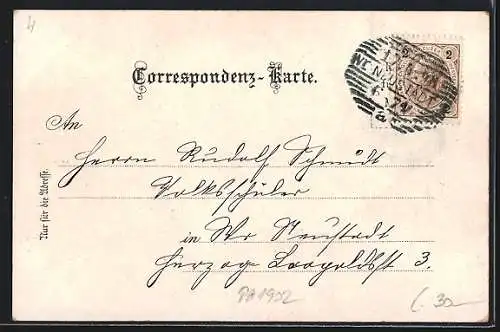 4
2
WR. NEUSTADT
Correspondenz-Karte.
An
Herrn Rudolf Schmidt
Volksschüler
in Wr Neustadt
Herzog Leopoldst 3.
Nur für die Adresse.
1902